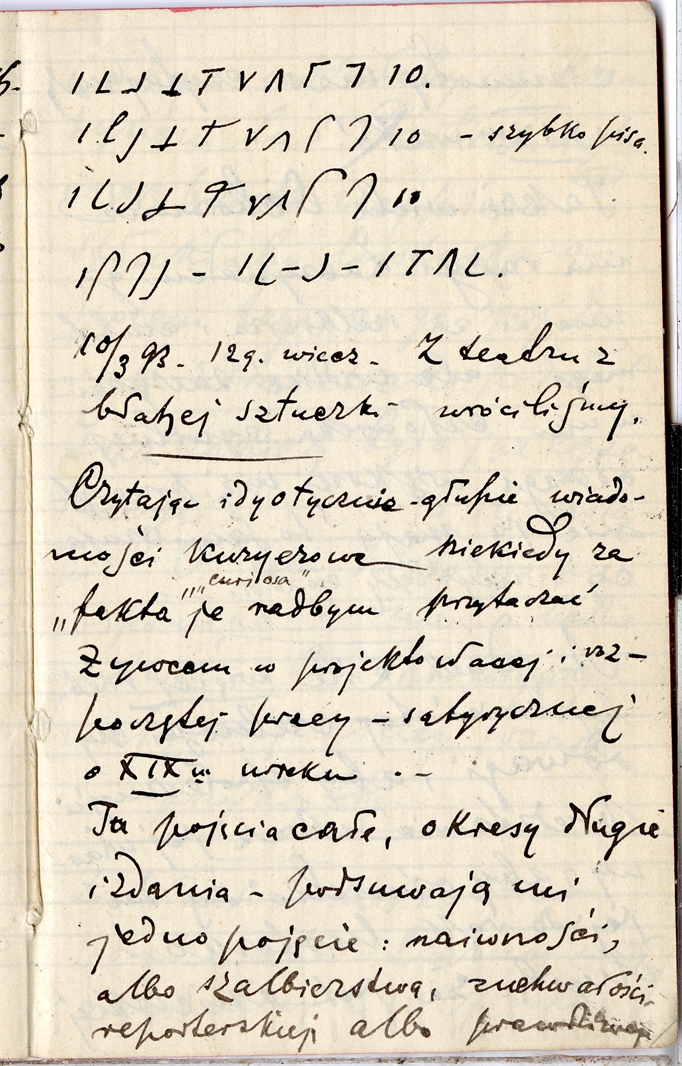 I L ⅃ ⊥ T V Λ Γ ꓶ 10.
I L ⅃ ⊥ T V Λ Γ ꓶ 10 – szybko pisa.
I L ⅃ ⊥ T V Λ Γ ꓶ 10
I Γ ꓶ ⅃ – I L – ⅃ – I T Λ L.
10/3 93. 12g. wiecz. Z teatru z
błahej sztuczki wróciliśmy.
Czytając idyotyczne-głupie wiado-
mości kuryerowe niekiedy za
„curiosa”
„fakta” je radbym przytaczać
Żywcem w projektowanej i roz-
poczętej pracy – satyrycznej
o XIXm wieku . –
Tu pojęcia całe, okresy długie
i zdania – podsuwają mi
jedno pojęcie: naiwności,
albo szalbierstwa, zuchwałości
reporterskiej albo prawdziwej